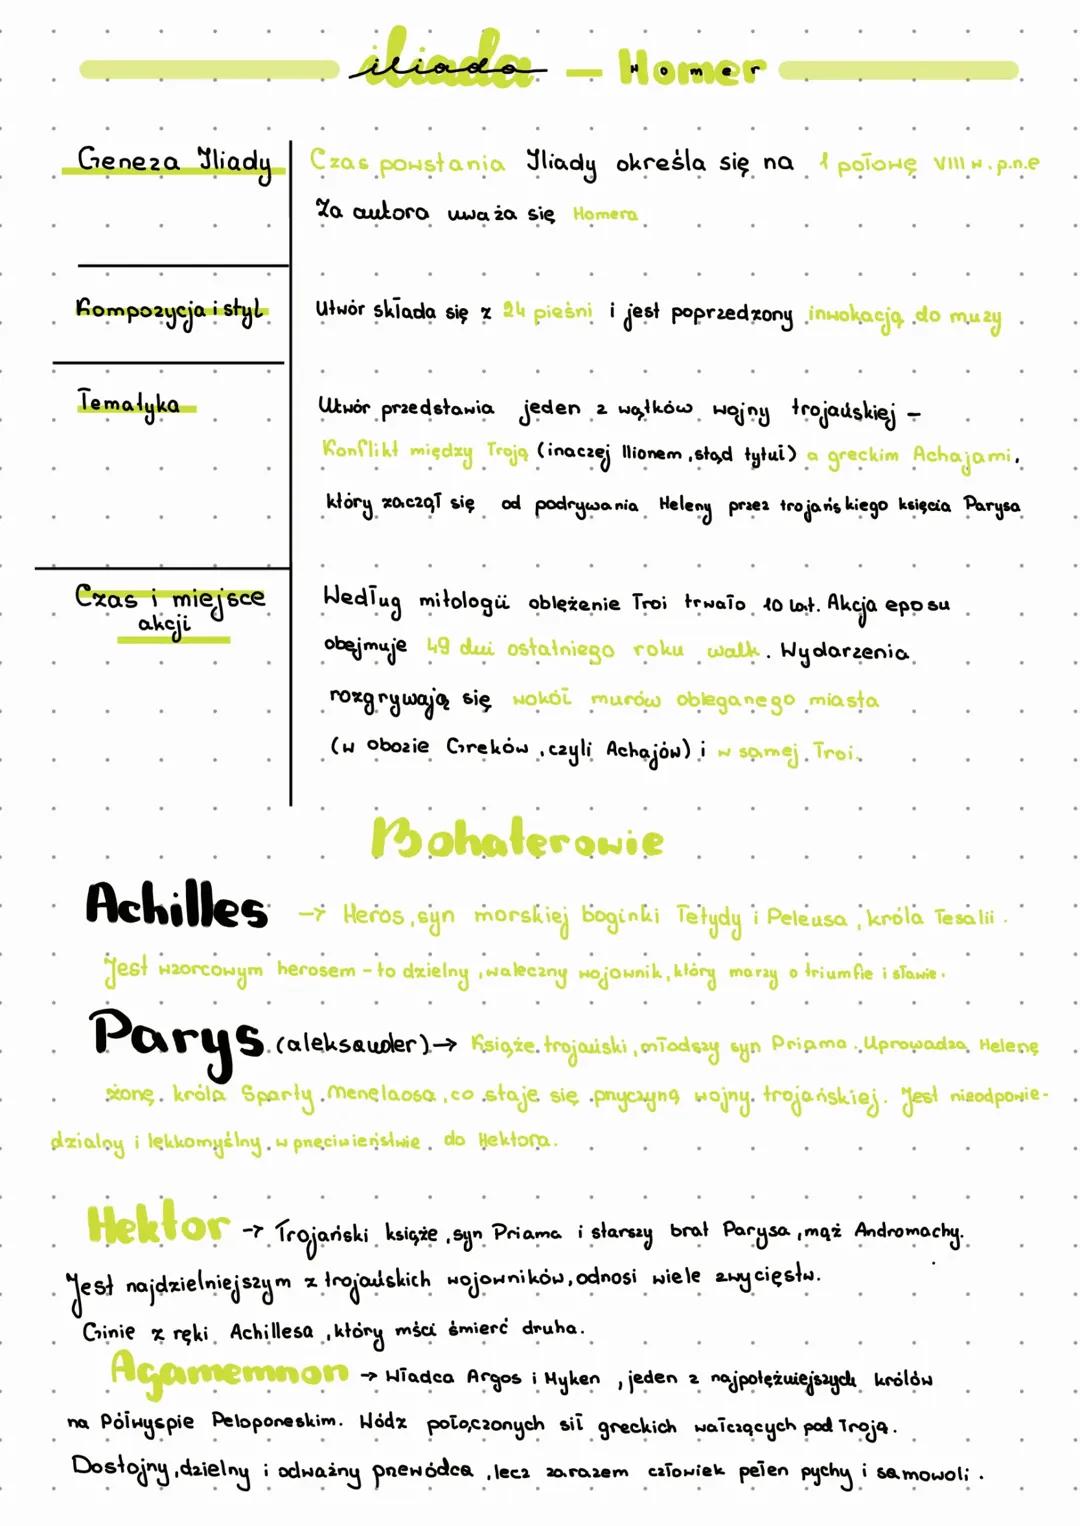 iliada — Homer
Geneza Iliady
Czas powstania Iliady określa się na 1 połowę VIII w.p.n.e
Za autora uważa się Homera
Kompozycja i styl
Utwór składa się z 24 pieśni i jest poprzedzony inwokacją do muzy
Tematyka
Utwór przedstawia jeden z wątków wojny trojańskiej -
Konflikt między Troją (inaczej Ilionem, stąd tytuł) a greckim Achajami,
który zaczął się od podrywania Heleny przez trojańskiego księcia Parysa
Czas i miejsce
akcji
Według mitologii oblężenie Troi trwało 10 lat. Akcja eposu
obejmuje 49 dni ostatniego roku walk. Wydarzenia
rozgrywają się wokół murów obleganego miasta
(w obozie Greków, czyli Achajów) i w samej Troi.
Bohaterowie
Achilles → Heros, syn morskiej boginki Tetydy i Peleusa, króla Tesalii.
Jest wzorcowym herosem - to dzielny, waleczny wojownik, który marzy o triumfie i sławie.
Parys (aleksander) → Książe trojański, młodszy syn Priama. Uprowadza Helenę
żonę króla Sparty Menelaosa, co staje się przyczyną wojny trojańskiej. Jest nieodpowie-
dzialny i lekkomyślny w przeciwieństwie do Hektora.
Hektor → Trojański książe, syn Priama i starszy brat Parysa, mąż Andromachy.
Jest najdzielniejszym z trojańskich wojowników, odnosi wiele zwycięstw.
Ginie z ręki Achillesa, który mści śmierć druha.
Agamemnon → Władca Argos i Myken, jeden z najpotężniejszych królów
na Półwyspie Peloponeskim. Wódz połączonych sił greckich walczących pod Troją.
Dostojny, dzielny i odważny przewódca, lecz zarazem człowiek pełen pychy i samowoli.